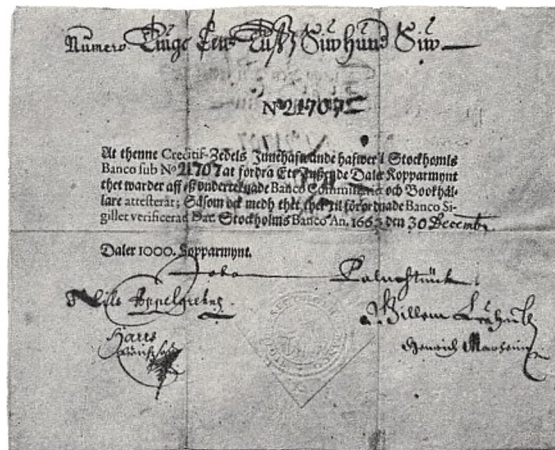 Numero Tiuge Ett Tuss Siw hund Siw
No 21707
At thenne Creditif-Zedels Innehafwande hafwer i Stockholms
Banco sub No 21707 at fordra Ett Tusende Daler Kopparmynt
thet warder aff oß undertecknade Banco Commissarie och Bookhål-
lare attesterat; Såsom ock medh thet här til förordnade Banco Si-
gillet verificerat Dat. Stockholms Banco An. 1663 den 30 Decembr.
Daler 1000. Kopparmynt.
Johan Palmstruck
Hans
Hinrich